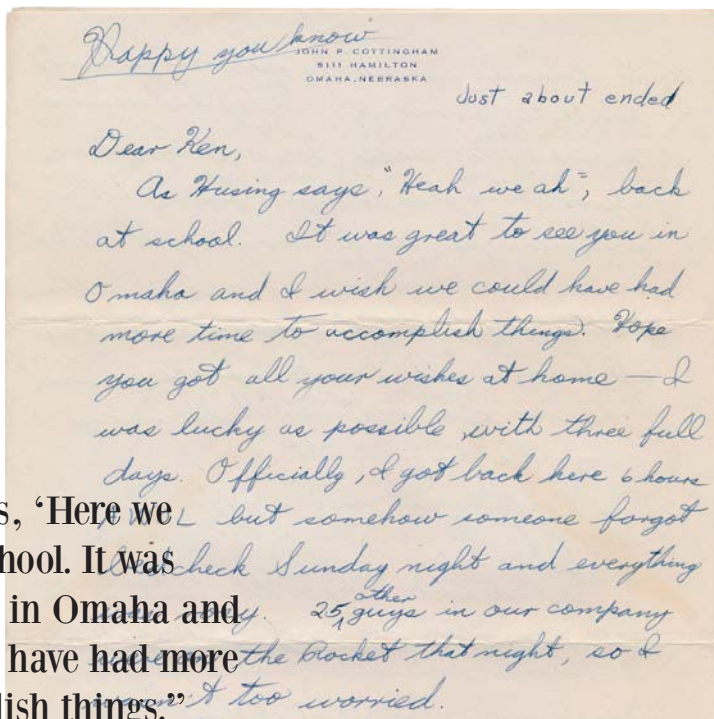 Happy you know
JOHN P. COTTINGHAM
5111 HAMILTON
OMAHA, NEBRASKA
Just about ended
Dear Ken,
As Husing says, "Heah we ah", back
at school. It was great to see you in
Omaha and I wish we could have had
more time to accomplish things. Hope
you got all your wishes at home — I
was lucky as possible, with three full
days. Officially, I got back here 6 hours
but somehow someone forgot
bedcheck Sunday night and everything
25 other guys in our company
the Rocket that night, so I
wasn't too worried.
s, ‘Here we
hool. It was
in Omaha and
have had more
lish things.”